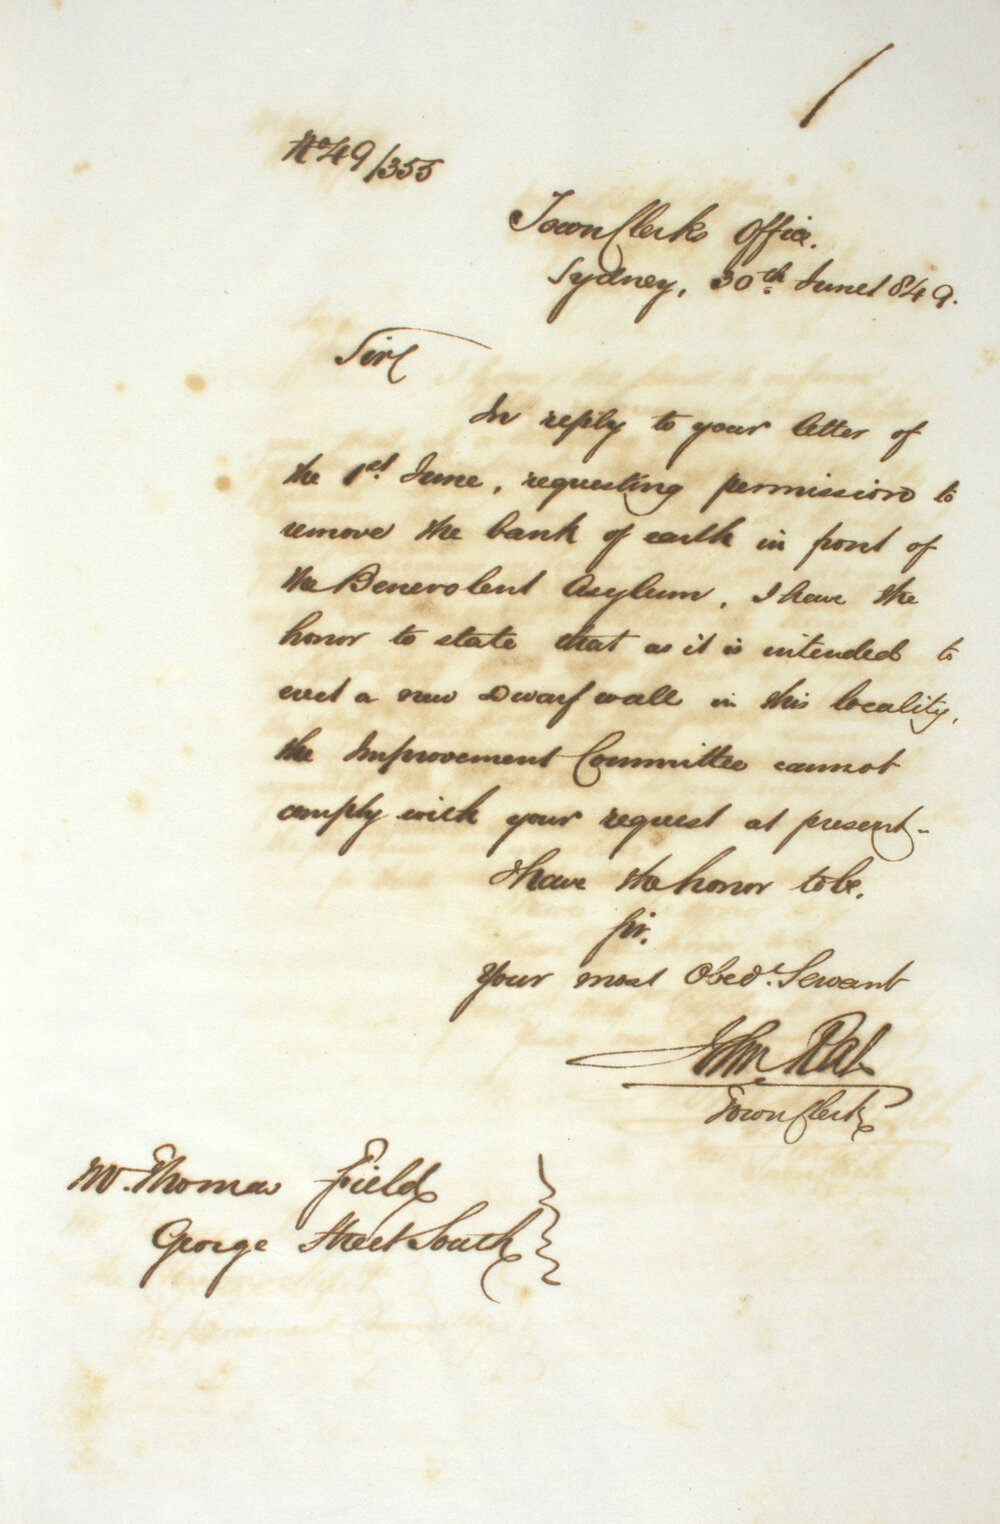 No 49/355
Town Clerks Office.
Sydney, 30th June 1849.
Sir
In reply to your letter of
the 1st. June, requesting permission to
remove the bank of earth in front of
the Benevolent Asylum, I have the
honor to state that as it is intended to
erect a new Dwarf wall in this locality,
the Improvement Committee cannot
comply with your request at present-
I have the honor to be,
Sir.
Your most Obedt. Servant
John Rae
Town Clerk
Mr. Thomas Field
George Street South